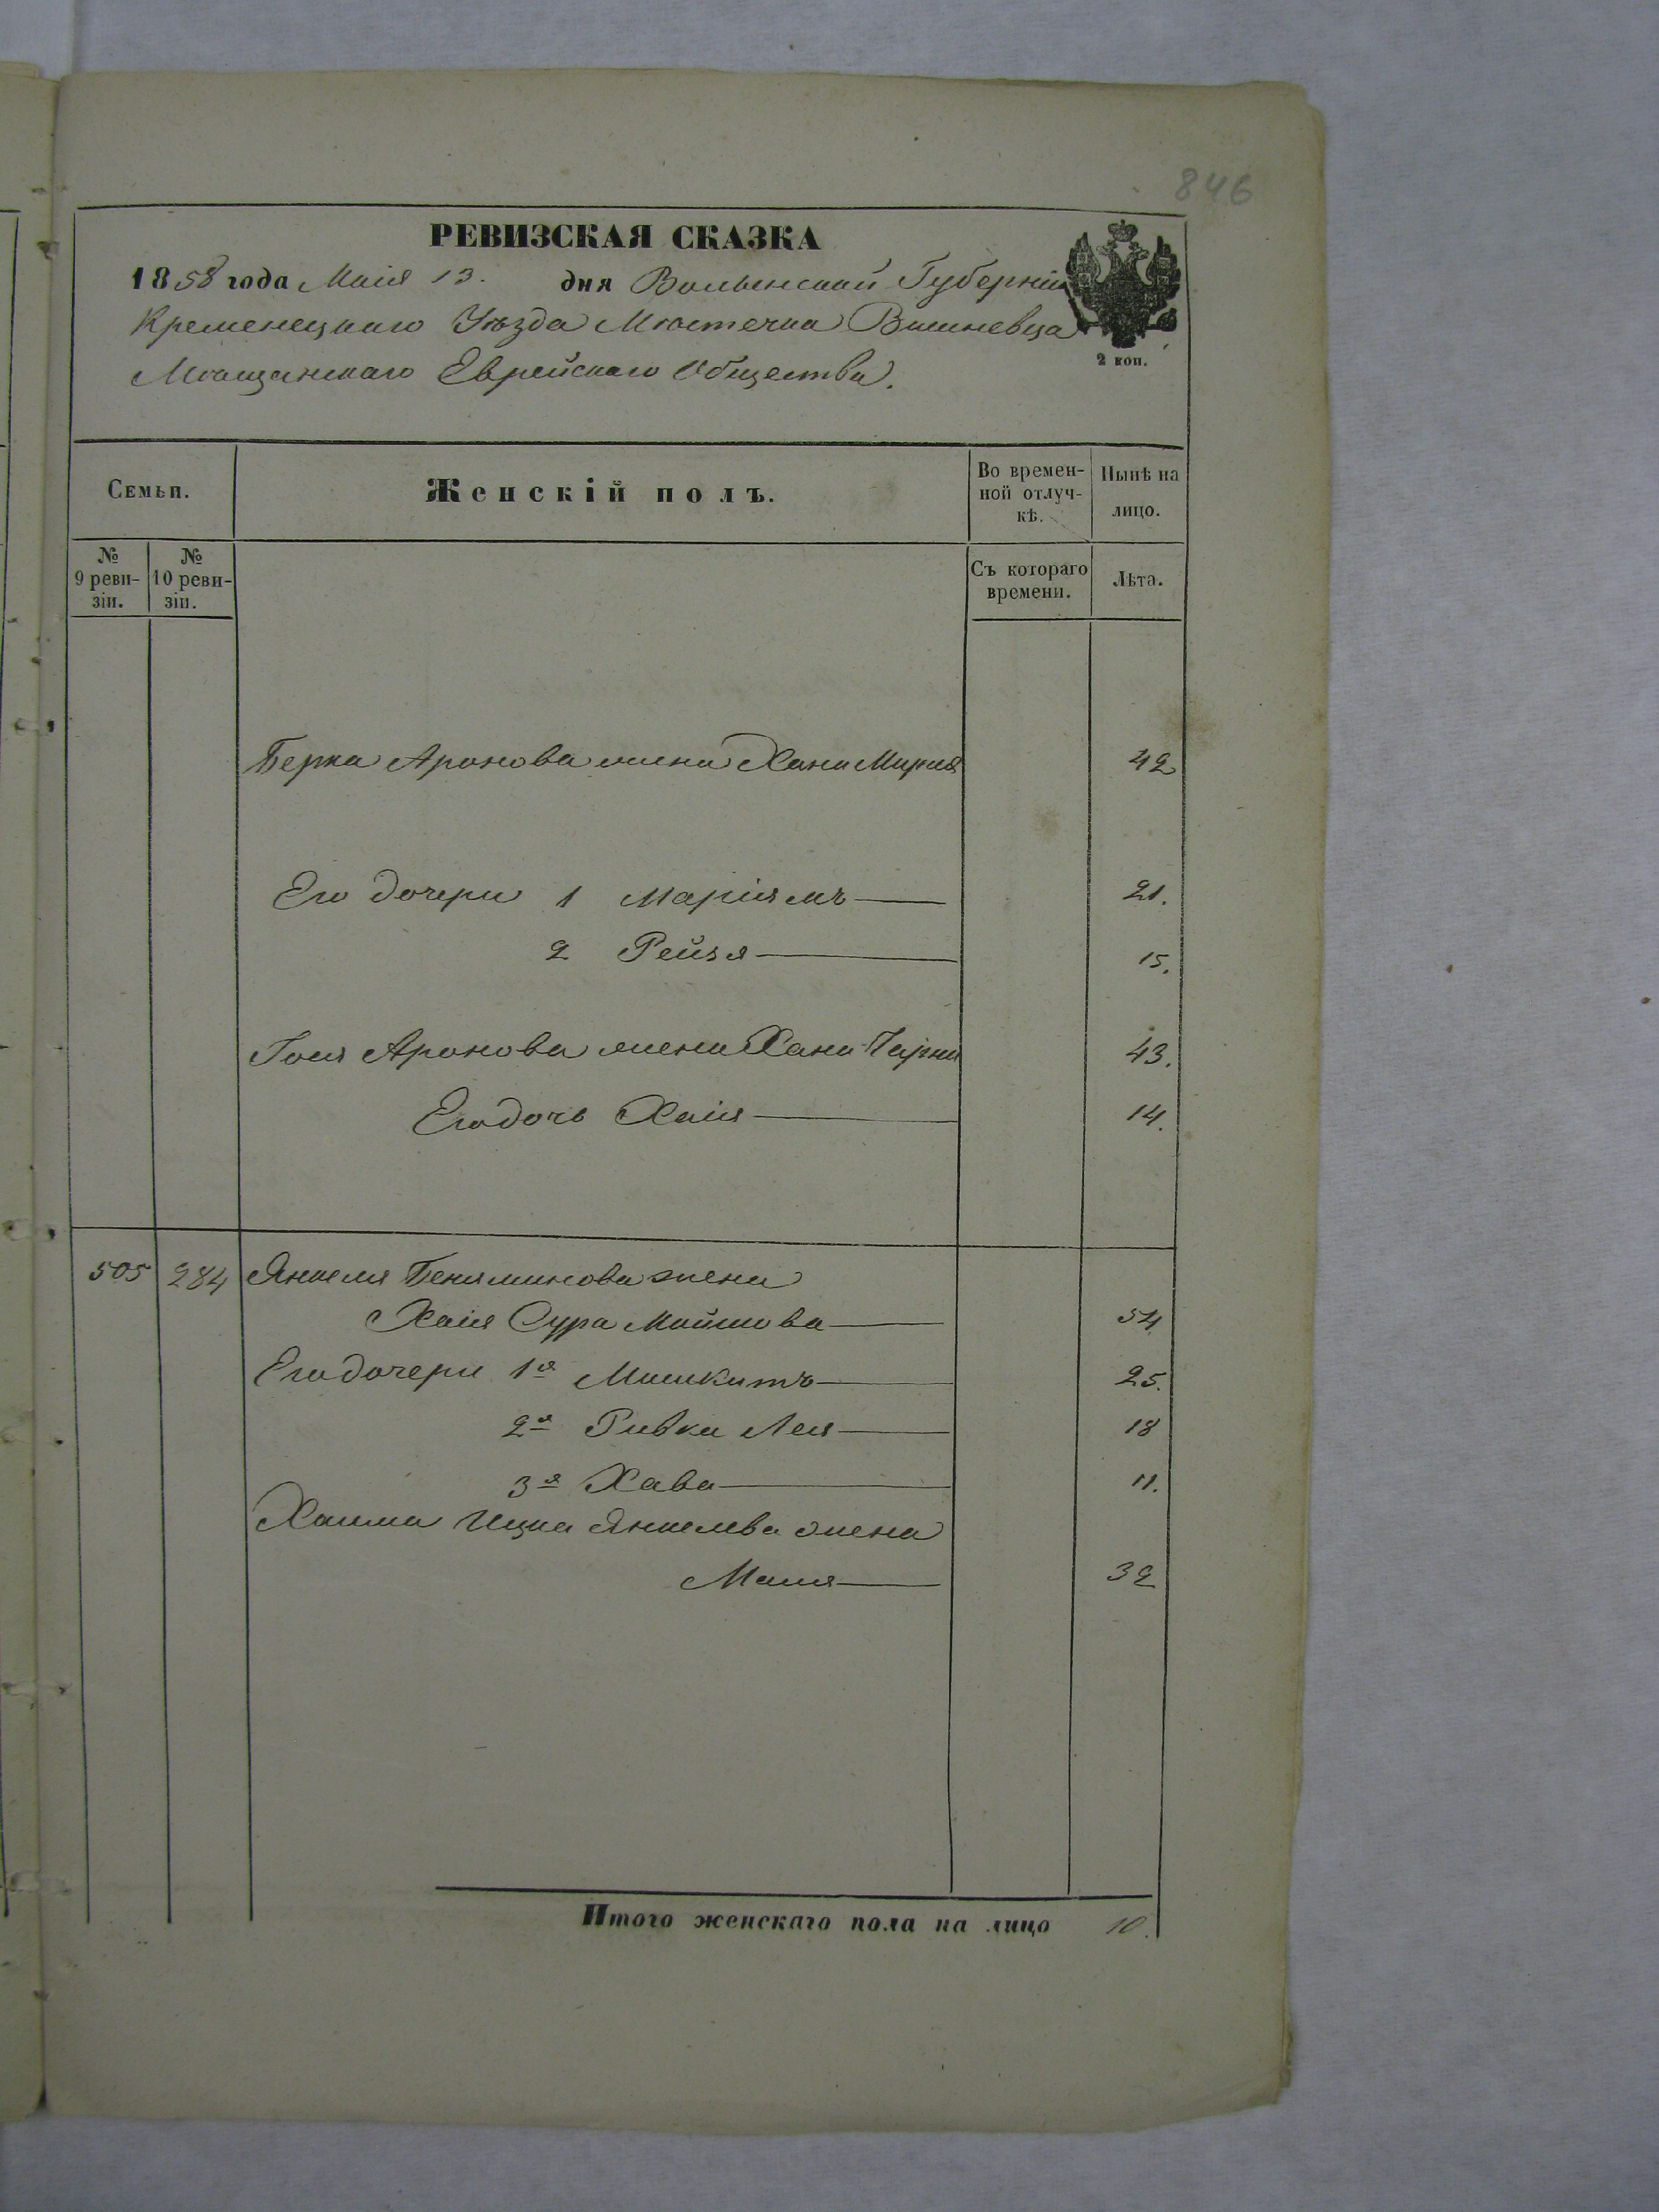 846
РЕВИЗСКАЯ СКАЗКА
1858 года Маія 13. дня Волынской Губерніи
Кременецкаго Уѣзда Мѣстечка Вишневца
Мѣщанскаго Еврейскаго Общества.
2 коп.
Семьи.
Женскій полъ.
Во времен-
ной отлуч-
кѣ.
Нынѣ на
лицо.
№
9 реви-
зіи.
№
10 реви-
зіи.
Съ котораго
времени.
Лѣта.
Берка Аронова жена Хана Мирля 42
Его дочери 1 Маріямъ 21.
2 Рейзя 15.
Аронова жена Хана Чарна 43.
Его дочь Хаія 14.
505 284 Янкеля Беняминова жена
Хаія Сура Мойшова 54
Его дочери 1я 25.
2я Ривка Лея 18
3я Хава 11.
Хаима Ицка Янкелева жена
Маля 32
Итого женскаго пола на лицо 10.